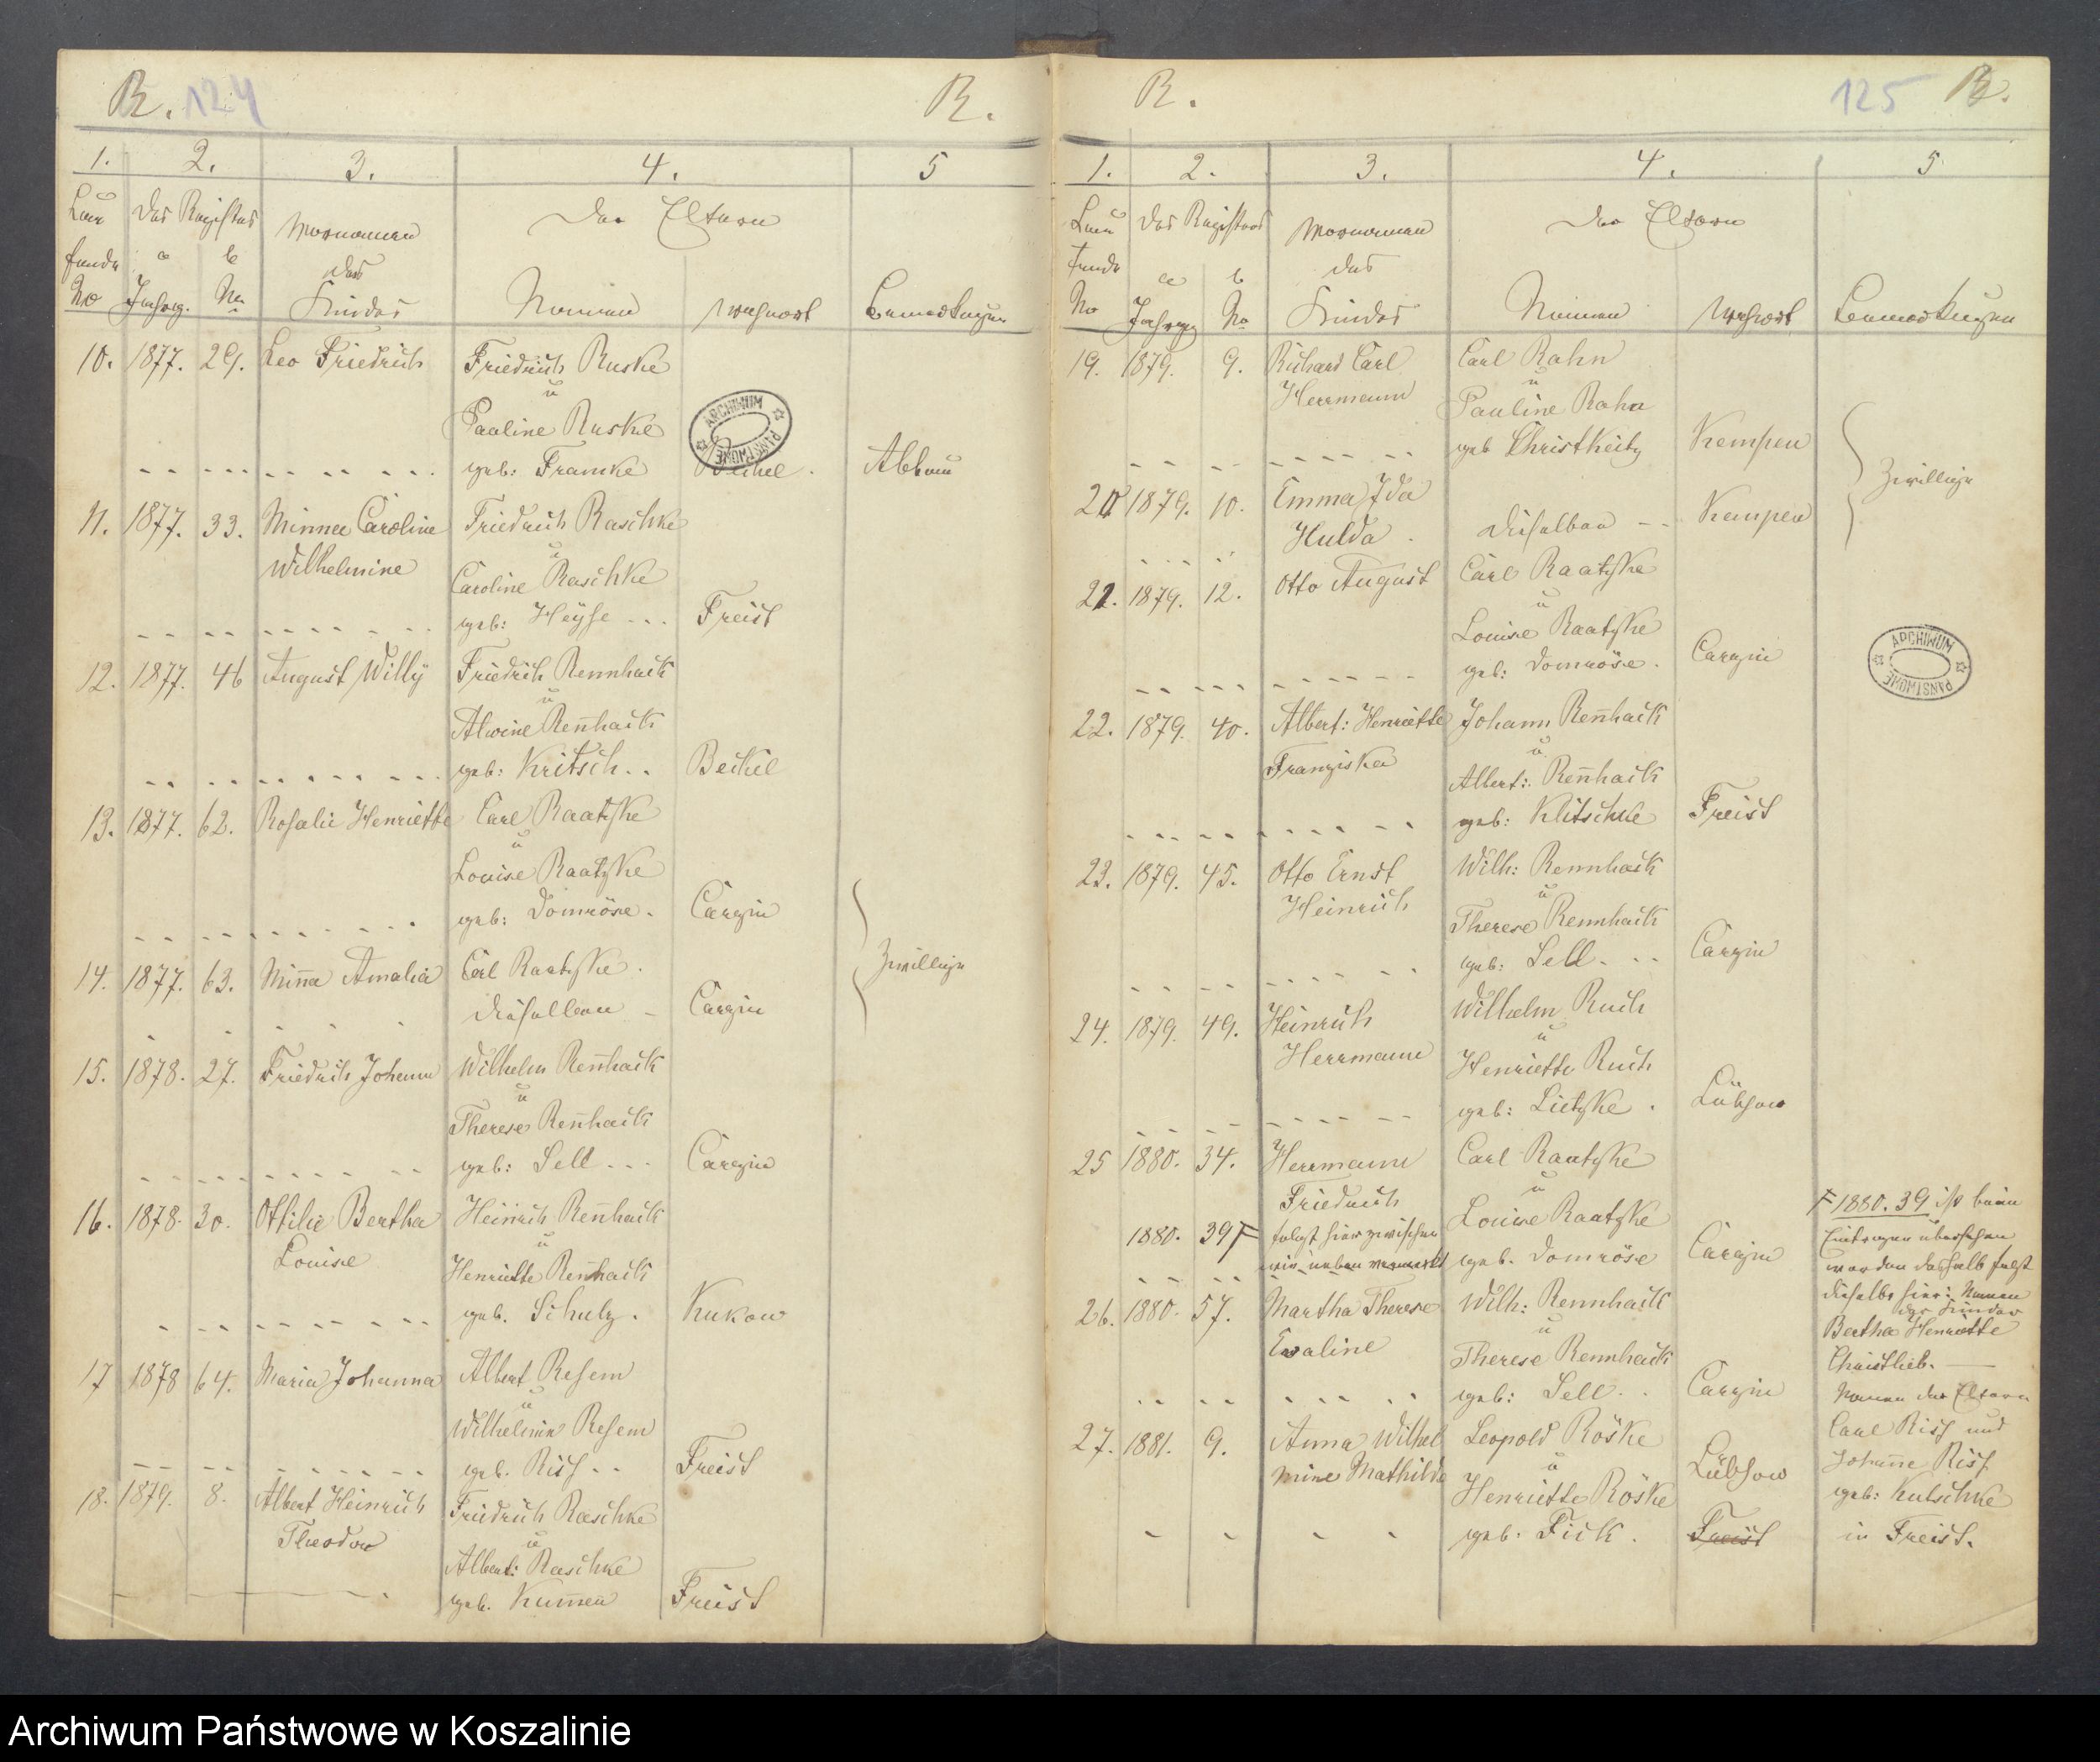 R. 124 R.
1. 2. 3. 4. 5
Lau des Registers Vornamen der Eltern
fende a b des
No Jahrg. No Kindes Namen Wohnort Bemerkungen
10. 1877. 29. Leo Friedrich Friedrich Ruske
u
Pauline Ruske
geb: Framke
ARCHIWUM PAŃSTWOWE
11. 1877. 33. Minna Caroline Friedrich Raschke
Wilhelmine u
Caroline Raschke
geb: Heyse Freist
12. 1877. 46 August Willy Friedrich Rennhack
u
Alwine Reñhack
geb: Kritsch.. Beckel
13. 1877. 62. Rosalie Henriette Carl Raatzke
u
Louise Raatzke
geb: Domröse. Cargin
14. 1877. 63. Miña Amalia Carl Raatzke.
dieselben Cargin
Zwillinge
15. 1878. 27. Friedrich Johann Wilhelm Reñhack
u
Therese Reñhack
geb: Sell Cargin
16. 1878. 30. Ottilie Bertha Heinrich Reñhack
Louise u
Henriette Reñhack
geb. Schulz. Kukow
17 1878 64. Maria Johanna Albert Resem
u
Wilhelmine Resem
geb. Risch Freist
18. 1879. 8. Albert Heinrich Friedrich Raschke
Theodor u
Albert: Raschke
geb. Kum̄en Freist
R. 125 R.
1. 2. 3. 4. 5
Lau des Registers Vornamen der Eltern
fende a b des
No Jahrgg No Kindes Namen Wohnort Bemerkungen
19. 1879. 9. Richard Carl Carl Rahn
Herrmann u
Pauline Rahn
geb Christkeitz Kempen
Zwillinge
20 1879. 10. Emma Ida
Hulda. dieselben Kempen
21. 1879. 12. Otto August Carl Raatzke
u
Louise Raatzke
geb: Domröse. Cargin
ARCHIWUM PAŃSTWOWE
22. 1879. 40. Albert: Henriette Johann Reñhack
Franziska u
Albert: Reñhack
geb: Klitschke Freist
23. 1879. 45. Otto Ernst Wilh: Rennhack
Heinrich u
Therese Rennhack
geb: Sell Cargin
24. 1879. 49. Heinrich Wilhelm Ruch
Herrmann u
Henriette Ruch
geb: Lietzke. Lübsow
25 1880. 34. Herrmann Carl Raatzke
Friedrich u
1880. 39 folgt hier zwischen Louise Raatzke
wie neben vermerkt geb. Domröse Cargin
1880. 39 ist beim
Eintragen übersehen
worden deshalb folgt
dieselbe hier: Namen
des Kindes
Bertha Henriette
Christlieb.
Namen der Eltern
Carl Risch und
Johanne Risch
geb: Kutschke
in Freist.
26. 1880. 57. Martha Therese Wilh: Rennhack
Evaline u
Therese Rennhack
geb: Sell Cargin
27. 1881. 9. Anna Wilhel Leopold Röske
mine Mathilde u Lübsow
Henriette Röske
geb. Fick. Freist
Archiwum Państwowe w Koszalinie